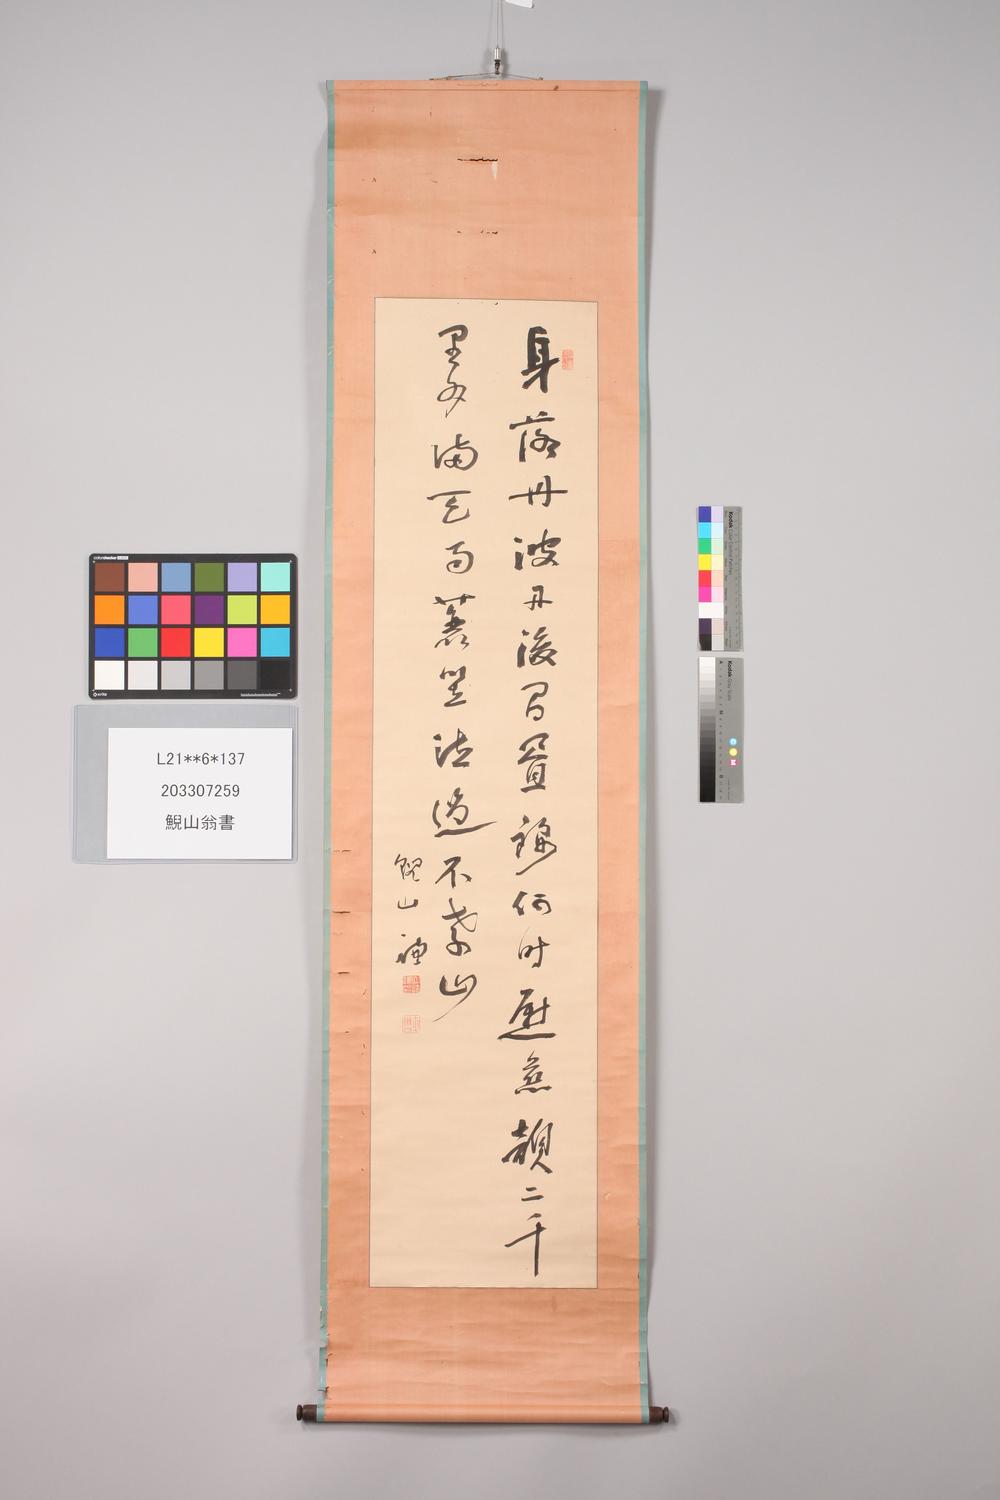 身落丹波丹後間晝錦何時慰慈顔二千
里外満天雨蓑笠泣過不孝山
鯢山
L21**6*137
203307259
鯢山翁書
colorchecker
x-rite
Kodak Color Control Patches
Kodak Gray Scale
C
Y
M